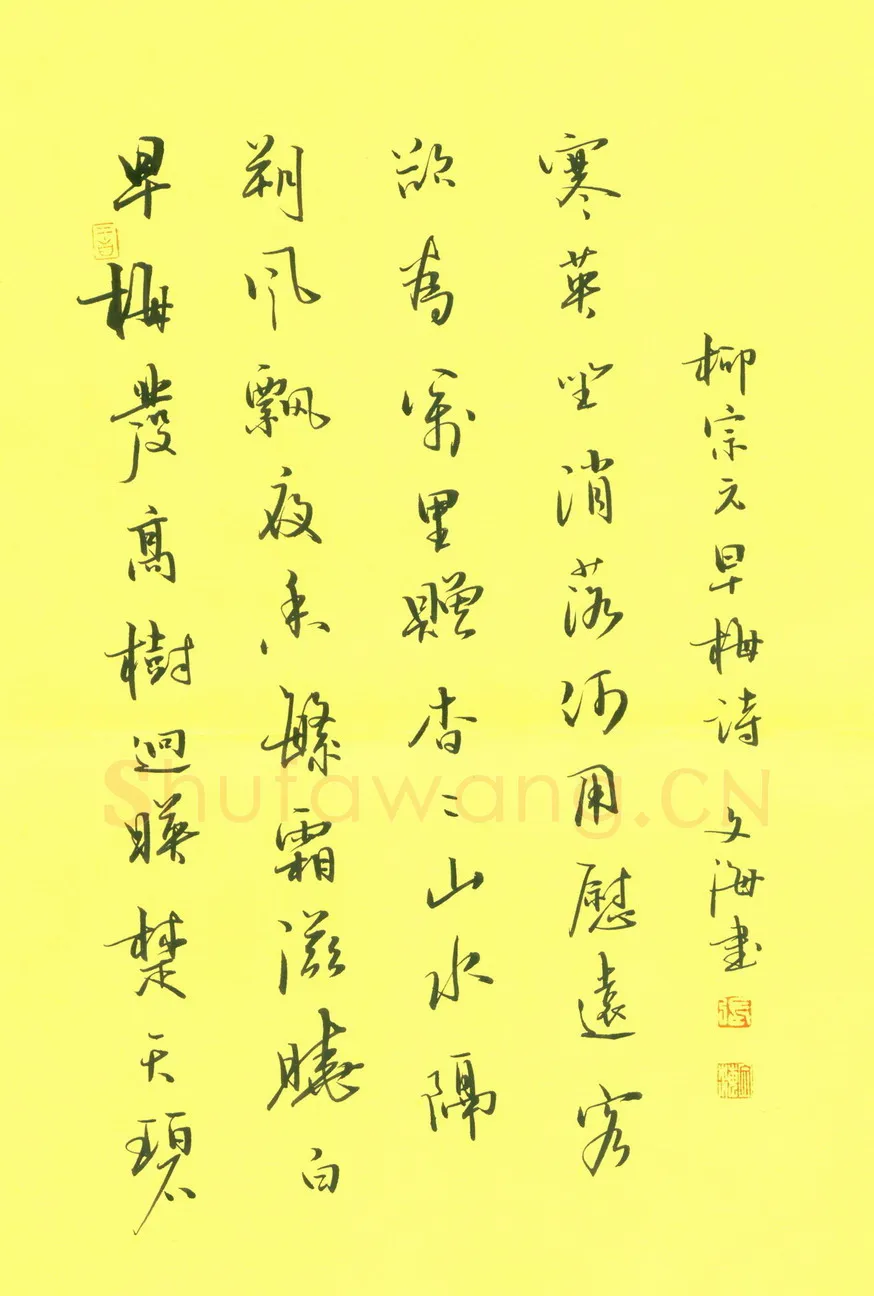 早梅發高樹迥暎楚天碧
朔风飘夜香繁霜滋曉白
欲為萬里贈杳〻山水隔
寒英坐消落何用慰遠客
柳宗元早梅诗 文海書
Shufawang.CN